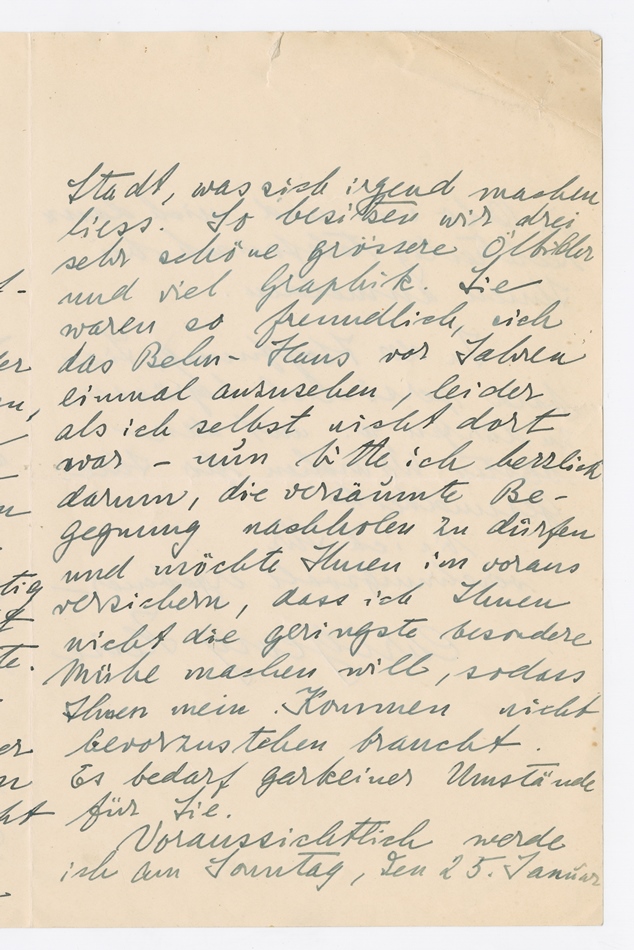 Stadt, was sich irgend machen
liess. So besitzen wir drei
sehr schöne grössere Ölbilder
und viel Graphik. Sie
waren so freundlich, sich
das Behn-Haus vor Jahren
einmal anzusehen, leider
als ich selbst nicht dort
war - nun bitte ich herzlich
darum, die versäumte Be-
gegnung nachholen zu dürfen
und möchte Ihnen im voraus
versichern, dass ich Ihnen
nicht die geringste besondere
Mühe machen will, sodass
Ihnen mein Kommen nicht
bevorzustehen braucht.
Es bedarf garkeiner Umstände
für Sie.
Voraussichtlich werde
ich am Sonntag, den 25. Januar